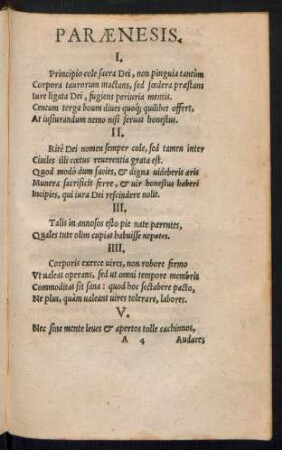 PARÆNESIS.
I.
Principio cole sacra Dei, non pinguia tantùm
Corpora taurorum mactans, sed fœdera præstans
Iure ligata Dei, fugiens periuria mentis.
Centum terga boum diues quoq; quilibet offert,
At iusiurandum nemo nisi seruat honestus.
II.
Ritè Dei nomen semper cole, sed tamen inter
Ciuiles illi cœtus reuerentia grata est.
Quod modò dum facies, & digna uideberis aris
Munera sacrificis ferre, & uir honestus haberi
Incipies, qui iura Dei rescindere nolit.
III.
Talis in annosos esto pie nate parentes,
Quales tute olim cupias habuisse nepotes.
IIII.
Corporis exerce uires, non robore firmo
Vt ualeas operans, sed ut omni tempore membris
Commoditas sit sana: quod hoc sectabere pacto,
Ne plus, quàm ualeant uires tolerare, labores.
V.
Nec sine mente leues & apertos tolle cachinnos,
A 4 Audaces